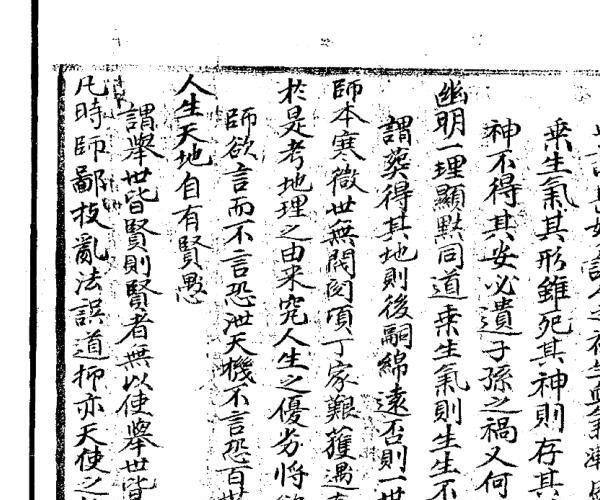 乘生氣其形雖死其神則存其
神不得其安必遺子孫之禍又何
幽明一理顯黙同道乘生氣則生生不
謂葬得其地則後嗣綿遠否則一世
師本寒微世無閥閱頃丁家艱獲遇
於是考地理之由来究人生之優劣將欲
師欲言而不言恐泄天機不言恐百世
人生天地自有賢愚
謂舉世皆賢則賢者無以使舉世皆
凡時師鄙技亂法誤道抑亦天使之